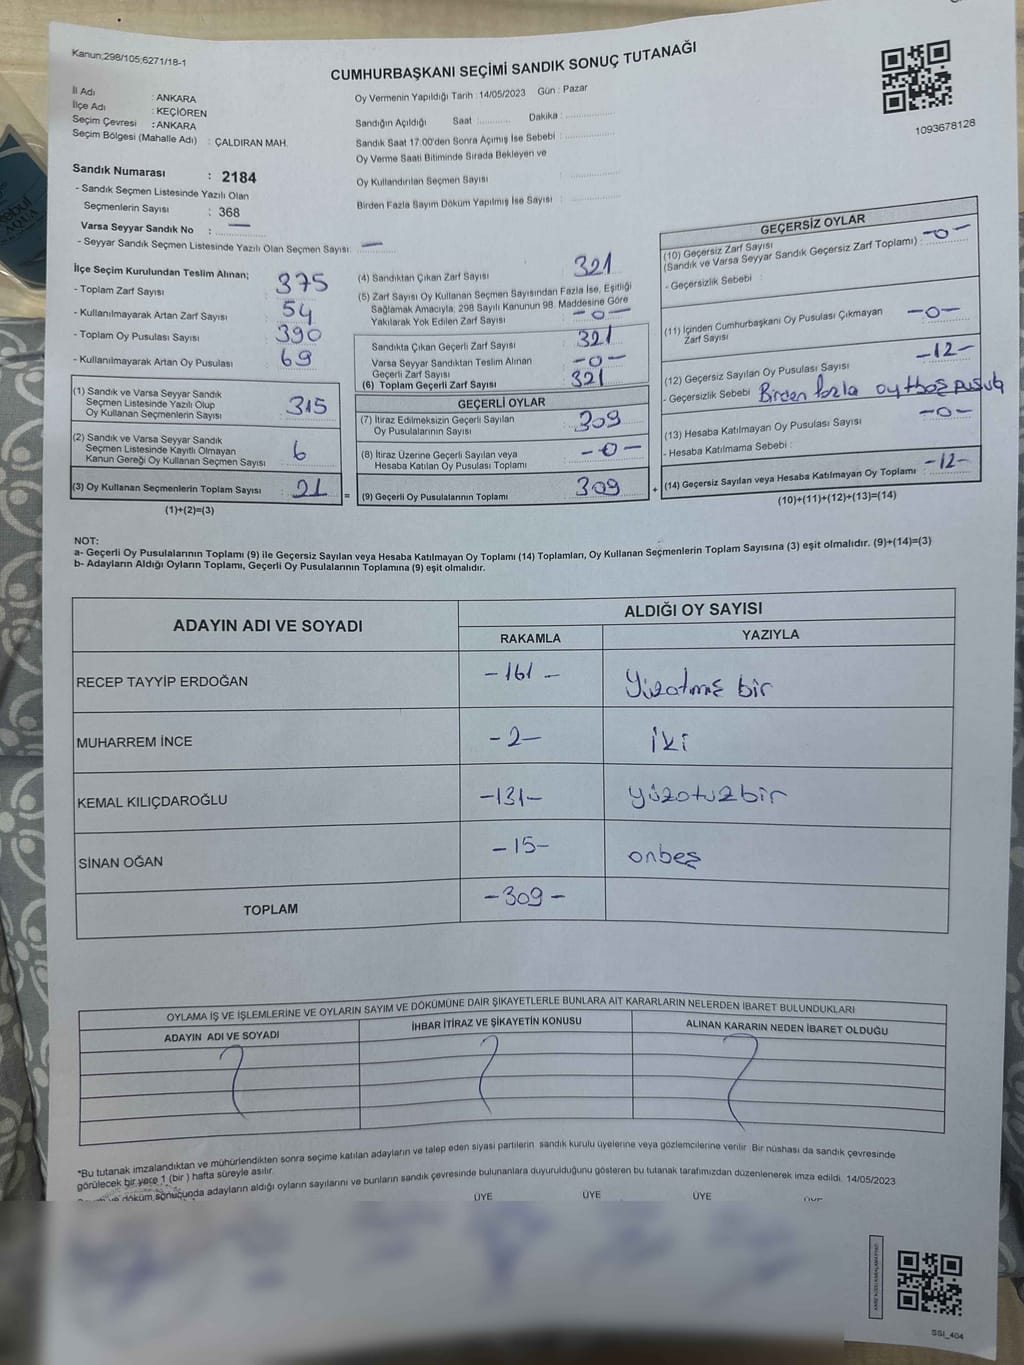 Kanun;298/105,6271/18-1
CUMHURBAŞKANI SEÇİMİ SANDIK SONUÇ TUTANAĞI
1093678128
İl Adı : ANKARA
İlçe Adı : KEÇİÖREN
Seçim Çevresi : ANKARA
Seçim Bölgesi (Mahalle Adı) : ÇALDIRAN MAH.
Sandık Numarası : 2184
- Sandık Seçmen Listesinde Yazılı Olan
Seçmenlerin Sayısı : 368
Varsa Seyyar Sandık No : —
- Seyyar Sandık Seçmen Listesinde Yazılı Olan Seçmen Sayısı: —
Oy Vermenin Yapıldığı Tarih : 14/05/2023 Gün : Pazar
Sandığın Açıldığı Saat :.......... Dakika :................
Sandık Saat 17:00'den Sonra Açımış İse Sebebi :................
Oy Verme Saati Bitiminde Sırada Bekleyen ve
Oy Kullandırılan Seçmen Sayısı :................
Birden Fazla Sayım Döküm Yapılmış İse Sayısı :................
İlçe Seçim Kurulundan Teslim Alınan;
- Toplam Zarf Sayısı : 375
- Kullanılmayarak Artan Zarf Sayısı : 54
- Toplam Oy Pusulası Sayısı : 390
- Kullanılmayarak Artan Oy Pusulası : 69
(1) Sandık ve Varsa Seyyar Sandık
Seçmen Listesinde Yazılı Olup
Oy Kullanan Seçmenlerin Sayısı : 315
(2) Sandık ve Varsa Seyyar Sandık
Seçmen Listesinde Kayıtlı Olmayan
Kanun Gereği Oy Kullanan Seçmen Sayısı : 6
(3) Oy Kullanan Seçmenlerin Toplam Sayısı : 21 =
(1)+(2)=(3)
(4) Sandıktan Çıkan Zarf Sayısı : 321
(5) Zarf Sayısı Oy Kullanan Seçmen Sayısından Fazla İse, Eşitliği
Sağlamak Amacıyla, 298 Sayılı Kanunun 98. Maddesine Göre
Yakılarak Yok Edilen Zarf Sayısı : -0-
Sandıkta Çıkan Geçerli Zarf Sayısı : 321
Varsa Seyyar Sandıktan Teslim Alınan
Geçerli Zarf Sayısı : -0-
(6) Toplam Geçerli Zarf Sayısı : 321
GEÇERLİ OYLAR
(7) İtiraz Edilmeksizin Geçerli Sayılan
Oy Pusulalarının Sayısı : 309
(8) İtiraz Üzerine Geçerli Sayılan veya
Hesaba Katılan Oy Pusulası Toplamı : -0-
(9) Geçerli Oy Pusulalarının Toplamı : 309 +
GEÇERSİZ OYLAR
(10) Geçersiz Zarf Sayısı
(Sandık ve Varsa Seyyar Sandık Geçersiz Zarf Toplamı) : -0-
- Geçersizlik Sebebi :
(11) İçinden Cumhurbaşkanı Oy Pusulası Çıkmayan
Zarf Sayısı : -0-
(12) Geçersiz Sayılan Oy Pusulası Sayısı : -12-
- Geçersizlik Sebebi : Birden fazla oy+boş pusula
(13) Hesaba Katılmayan Oy Pusulası Sayısı : -0-
- Hesaba Katılmama Sebebi :
(14) Geçersiz Sayılan veya Hesaba Katılmayan Oy Toplamı : -12-
(10)+(11)+(12)+(13)=(14)
NOT:
a- Geçerli Oy Pusulalarının Toplamı (9) ile Geçersiz Sayılan veya Hesaba Katılmayan Oy Toplamı (14) Toplamları, Oy Kullanan Seçmenlerin Toplam Sayısına (3) eşit olmalıdır. (9)+(14)=(3)
b- Adayların Aldığı Oyların Toplamı, Geçerli Oy Pusulalarının Toplamına (9) eşit olmalıdır.
ADAYIN ADI VE SOYADI ALDIĞI OY SAYISI
RAKAMLA YAZIYLA
RECEP TAYYİP ERDOĞAN -161- Yüzatmış bir
MUHARREM İNCE -2- iki
KEMAL KILIÇDAROĞLU -131- yüzotuzbir
SİNAN OĞAN -15- onbeş
TOPLAM -309-
OYLAMA İŞ VE İŞLEMLERİNE VE OYLARIN SAYIM VE DÖKÜMÜNE DAİR ŞİKAYETLERLE BUNLARA AİT KARARLARIN NELERDEN İBARET BULUNDUKLARI
ADAYIN ADI VE SOYADI İHBAR İTİRAZ VE ŞİKAYETİN KONUSU ALINAN KARARIN NEDEN İBARET OLDUĞU
*Bu tutanak imzalandıktan ve mühürlendikten sonra seçime katılan adayların ve talep eden siyasi partilerin sandık kurulu üyelerine veya gözlemcilerine verilir. Bir nüshası da sandık çevresinde
görülecek bir yere 1 (bir) hafta süreyle asılır.
ve döküm sonucunda adayların aldığı oyların sayılarını ve bunların sandık çevresinde bulunanlara duyurulduğunu gösteren bu tutanak tarafımızdan düzenlenerek imza edildi. 14/05/2023
ÜYE ÜYE ÜYE ÜYE
SSI_404